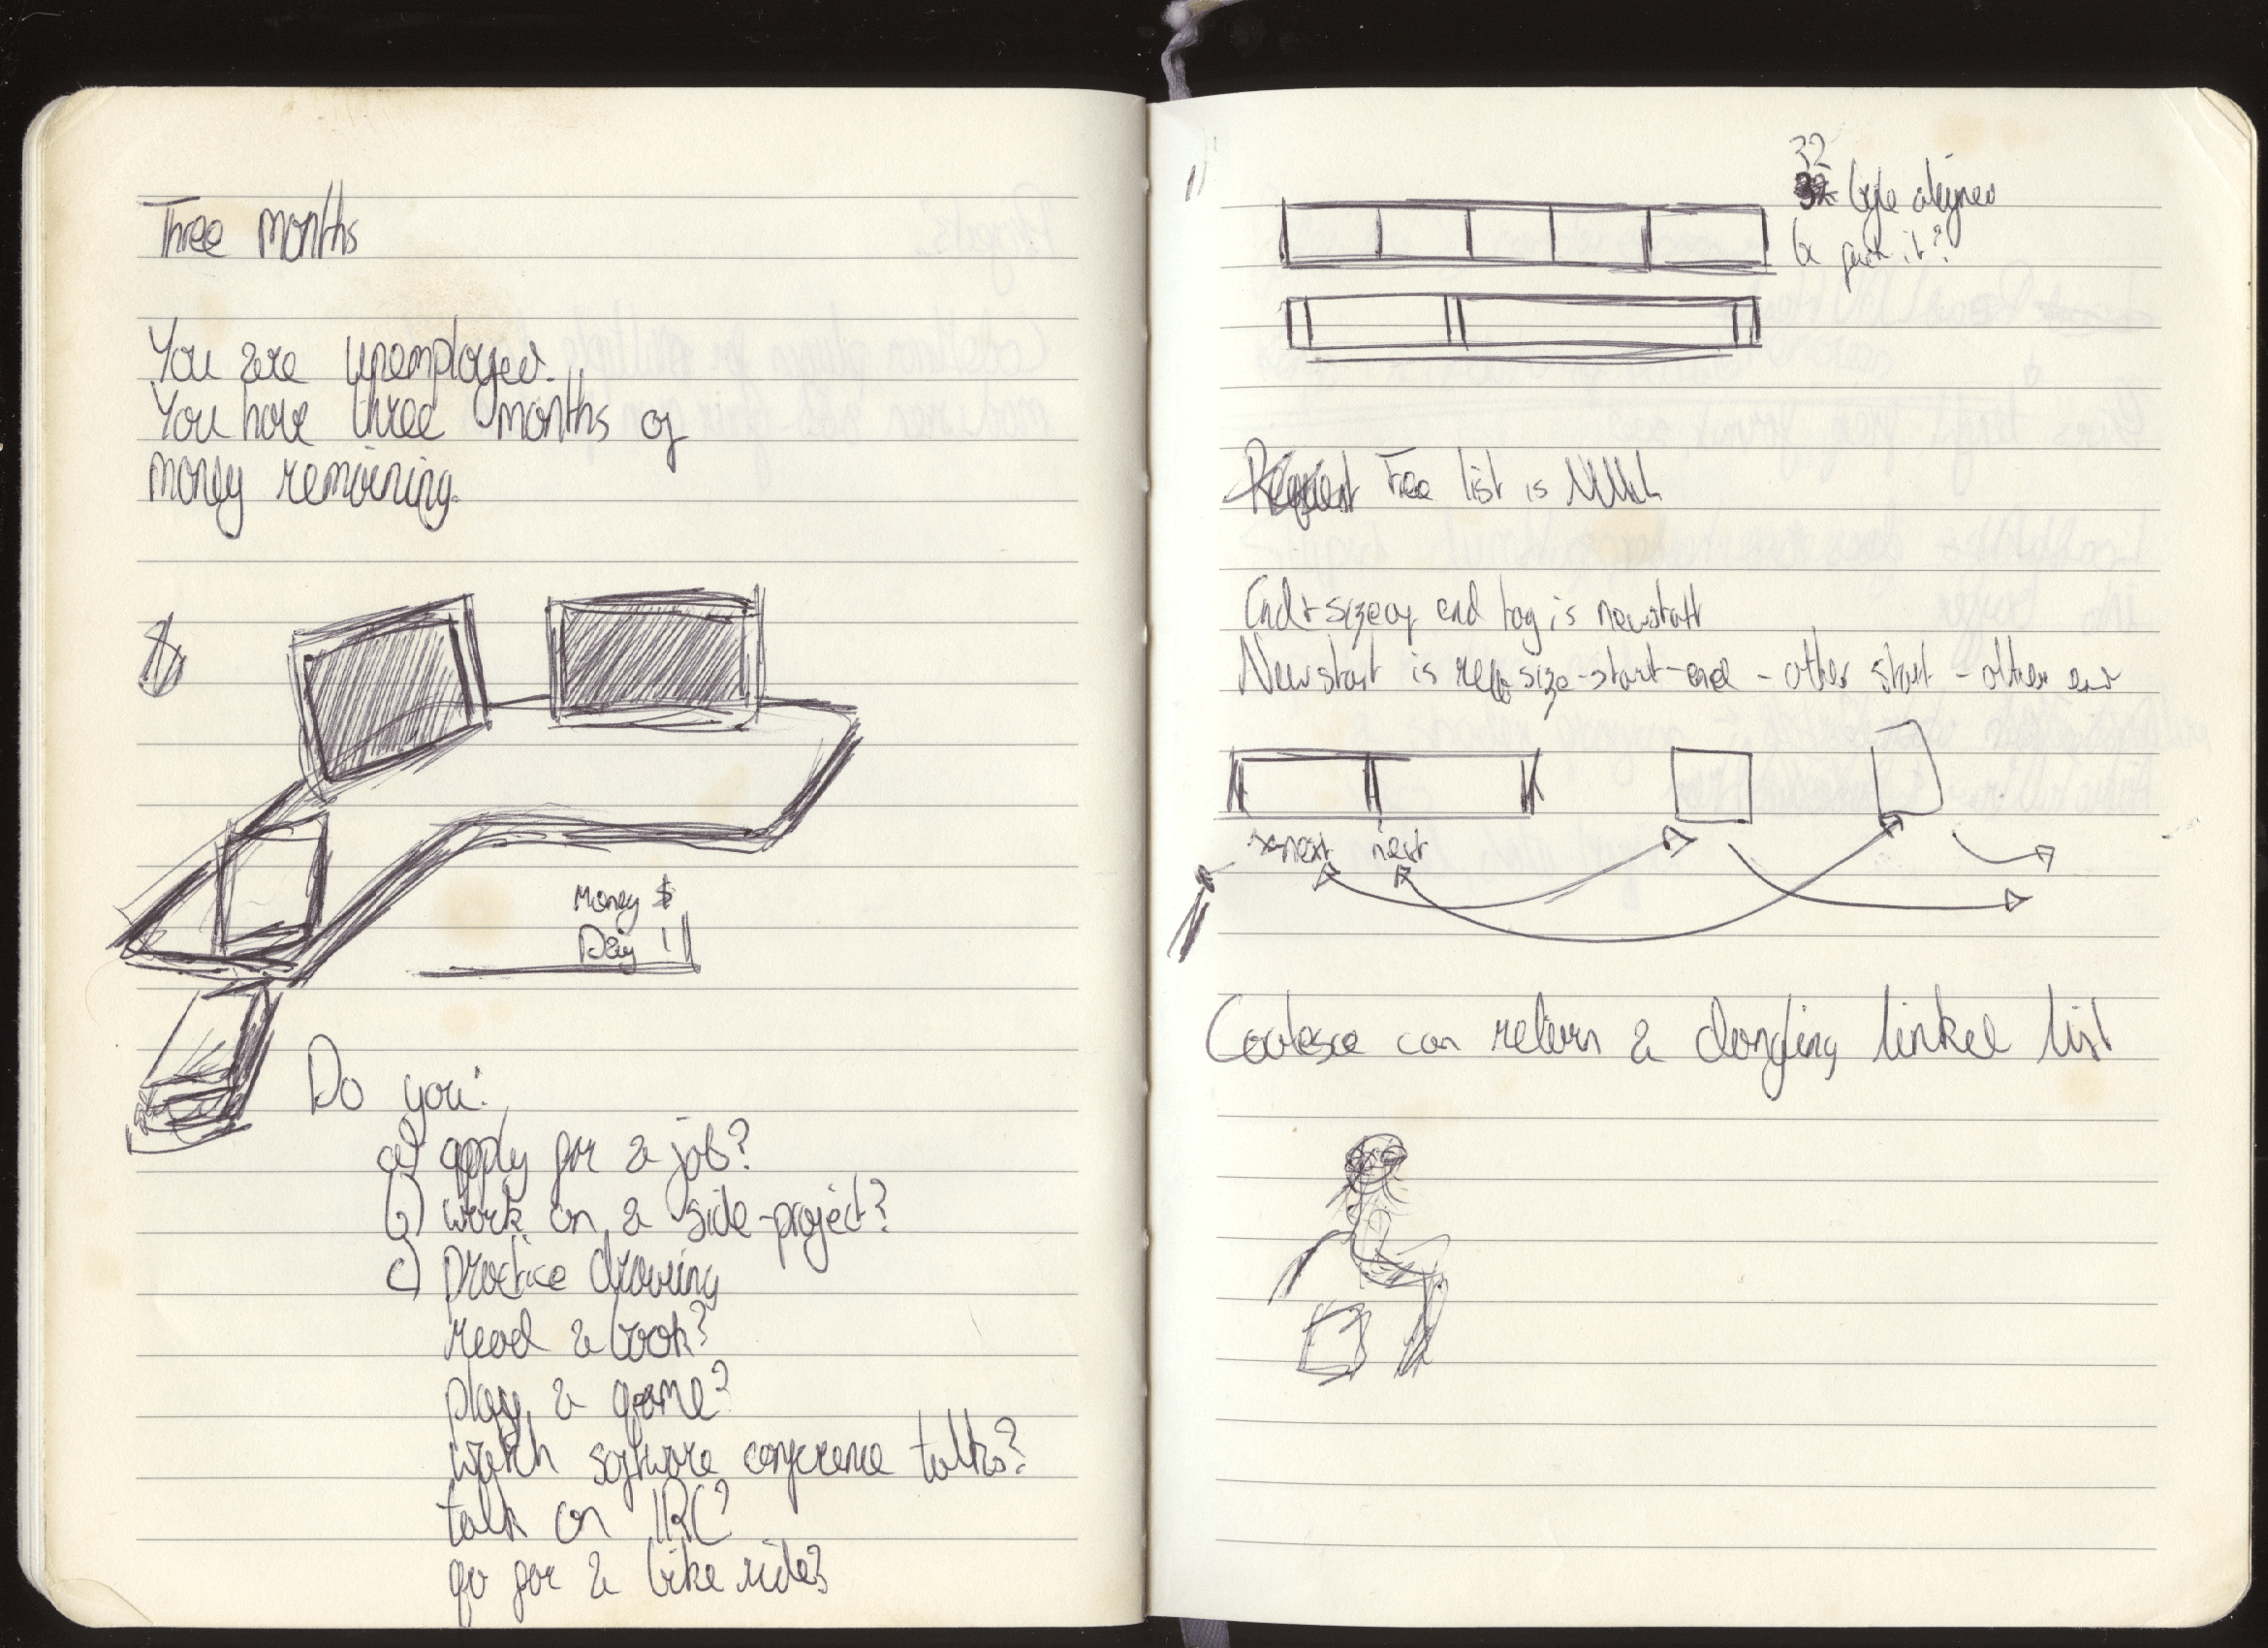 Three months
You are unemployed.
You have three months of
money remaining.
Money $
Day 1
Do you:
a) apply for a job?
b) work on a side-project?
c) practice drawing
read a book?
play a game?
watch software conference talks?
talk on IRC?
go for a bike ride?
32
byte aligned
pack it?
Request Free list is NULL
End + size of end tag is new start
New start is size - start - end - other start - other end
next next
Coalesce can return a dangling linked list